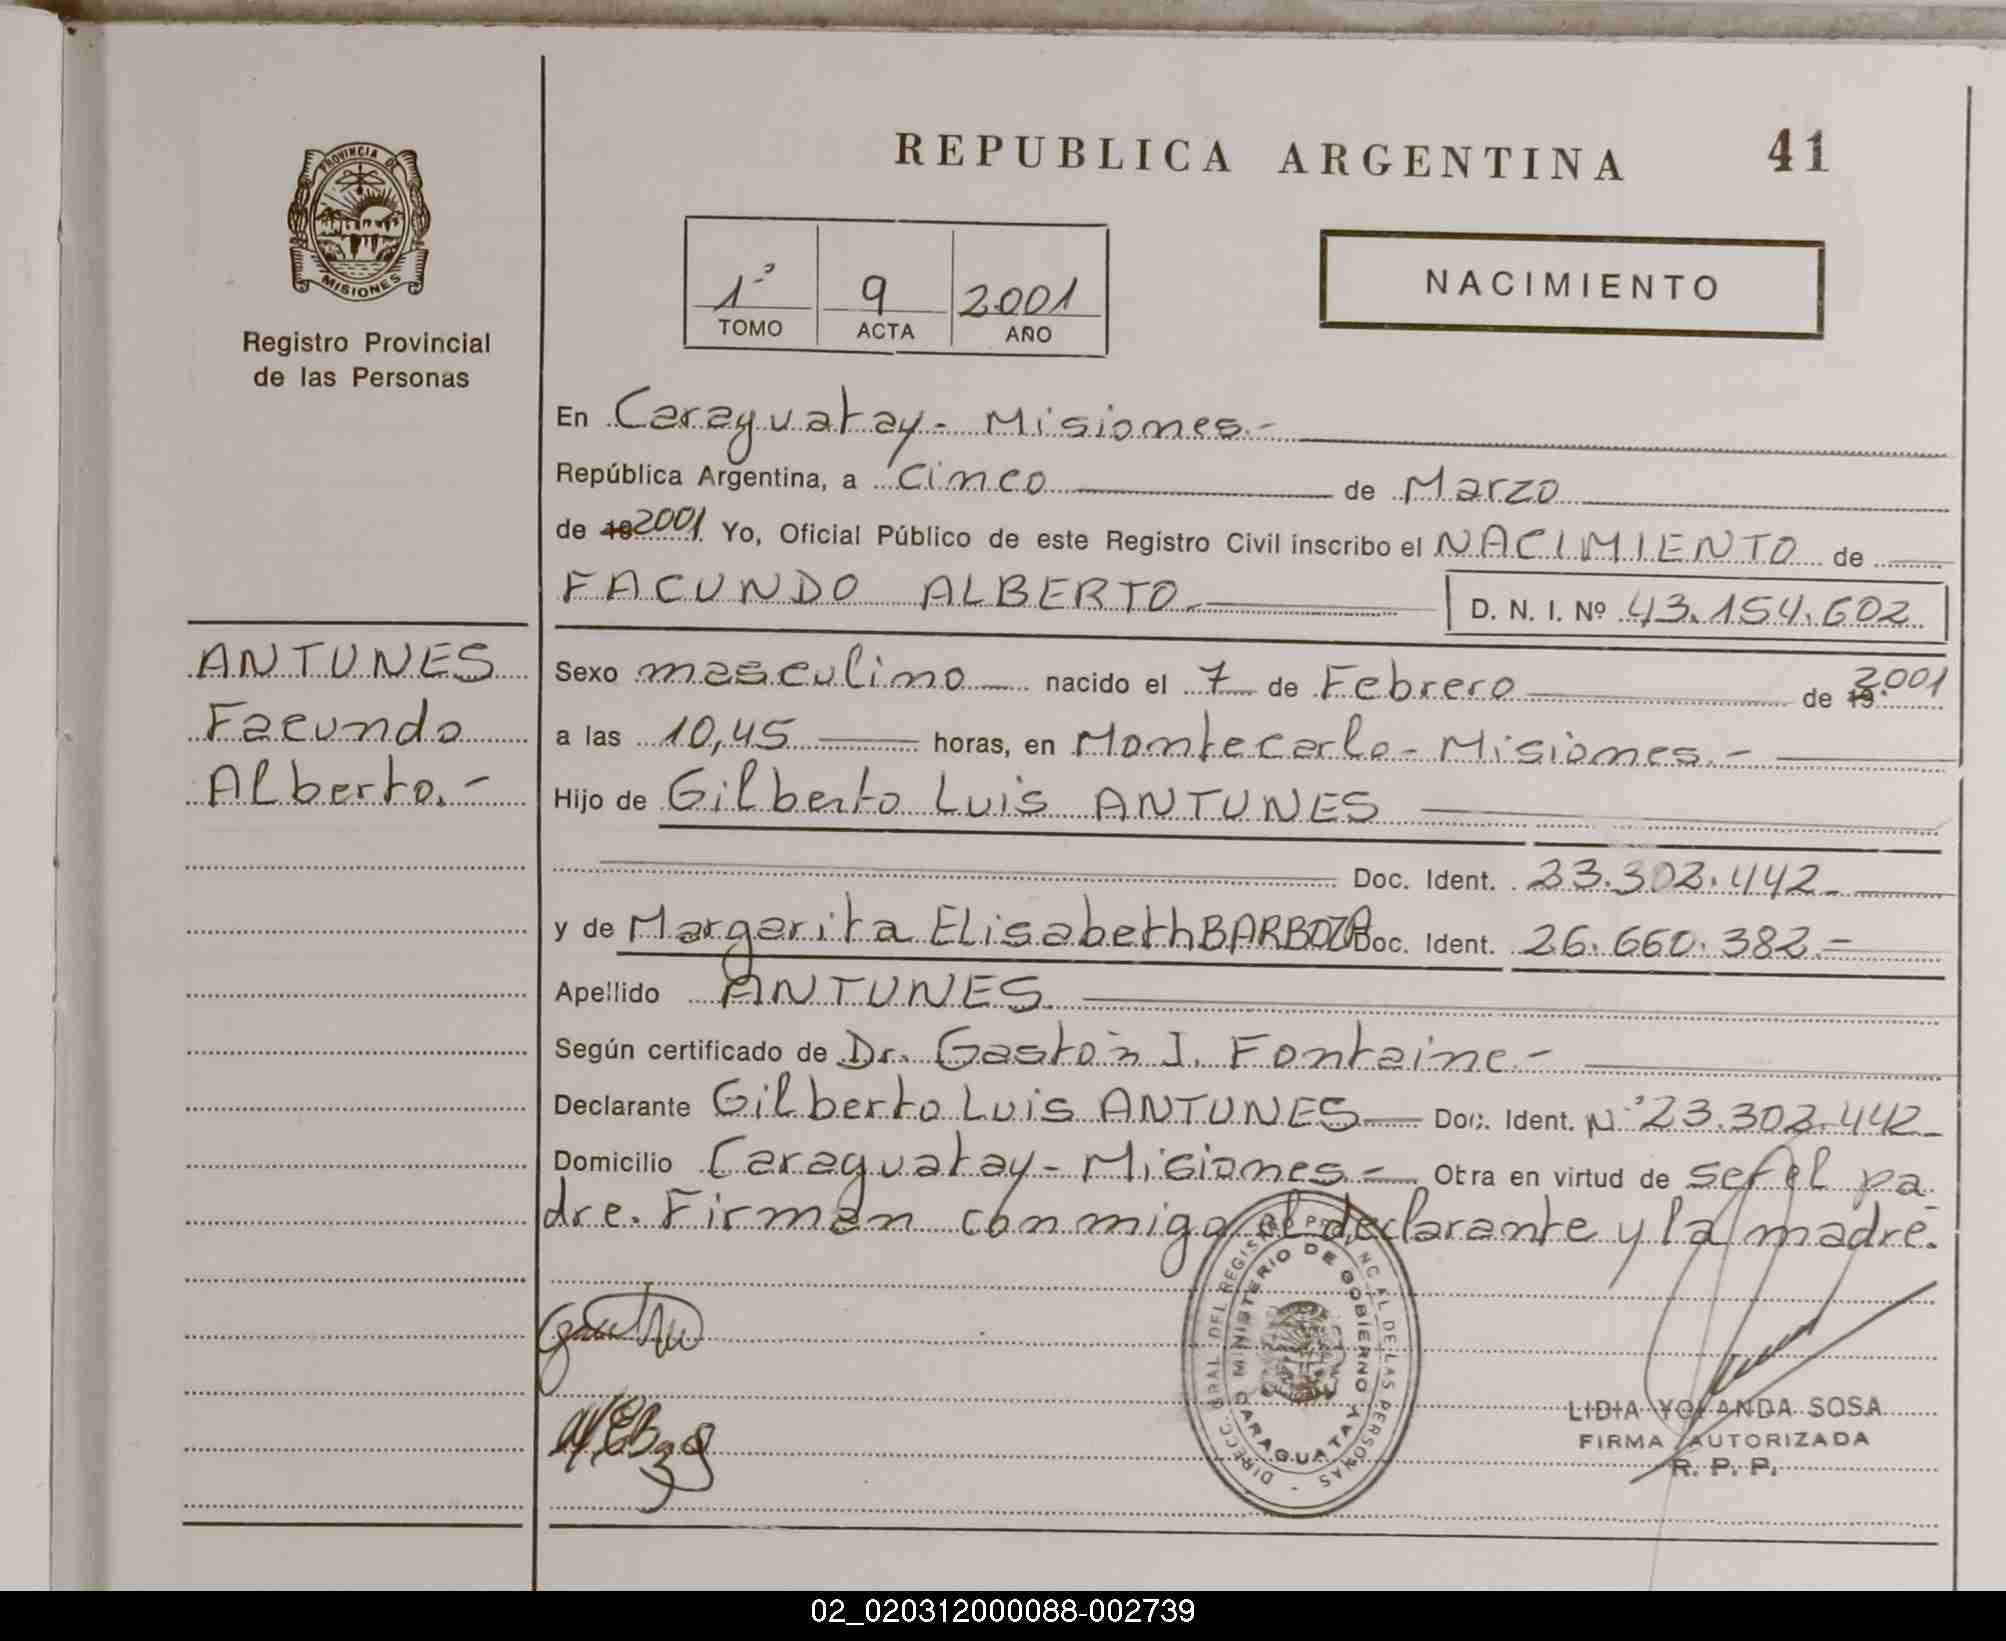 REPUBLICA ARGENTINA 41
PROVINCIA DE MISIONES
Registro Provincial
de las Personas
1º 9 2001
TOMO ACTA AÑO
NACIMIENTO
En Caraguatay - Misiones.-
República Argentina, a cinco de Marzo
de 19 2001 Yo, Oficial Público de este Registro Civil inscribo el NACIMIENTO de
FACUNDO ALBERTO. D. N. I. Nº 43.154.602
ANTUNES
Facundo
Alberto.-
Sexo masculino nacido el 7 de Febrero de 19 2001
a las 10,45 horas, en Montecarlo - Misiones.-
Hijo de Gilberto Luis ANTUNES
Doc. Ident. 23.302.442-
y de Margarita Elisabeth BARBOZA Doc. Ident. 26.660.382.-
Apellido ANTUNES.
Según certificado de Dr. Gastón J. Fontaine-
Declarante Gilberto Luis ANTUNES Doc. Ident. Nº 23.302.442-
Domicilio Caraguatay - Misiones.- Obra en virtud de ser el pa
dre. Firman conmigo el declarante y la madre.
DIRECC. GRAL. DEL REGISTRO PROVINCIAL DE LAS PERSONAS
MINISTERIO DE GOBIERNO
CARAGUATAY
LIDIA YOLANDA SOSA
FIRMA AUTORIZADA
R. P. P.
02_020312000088-002739